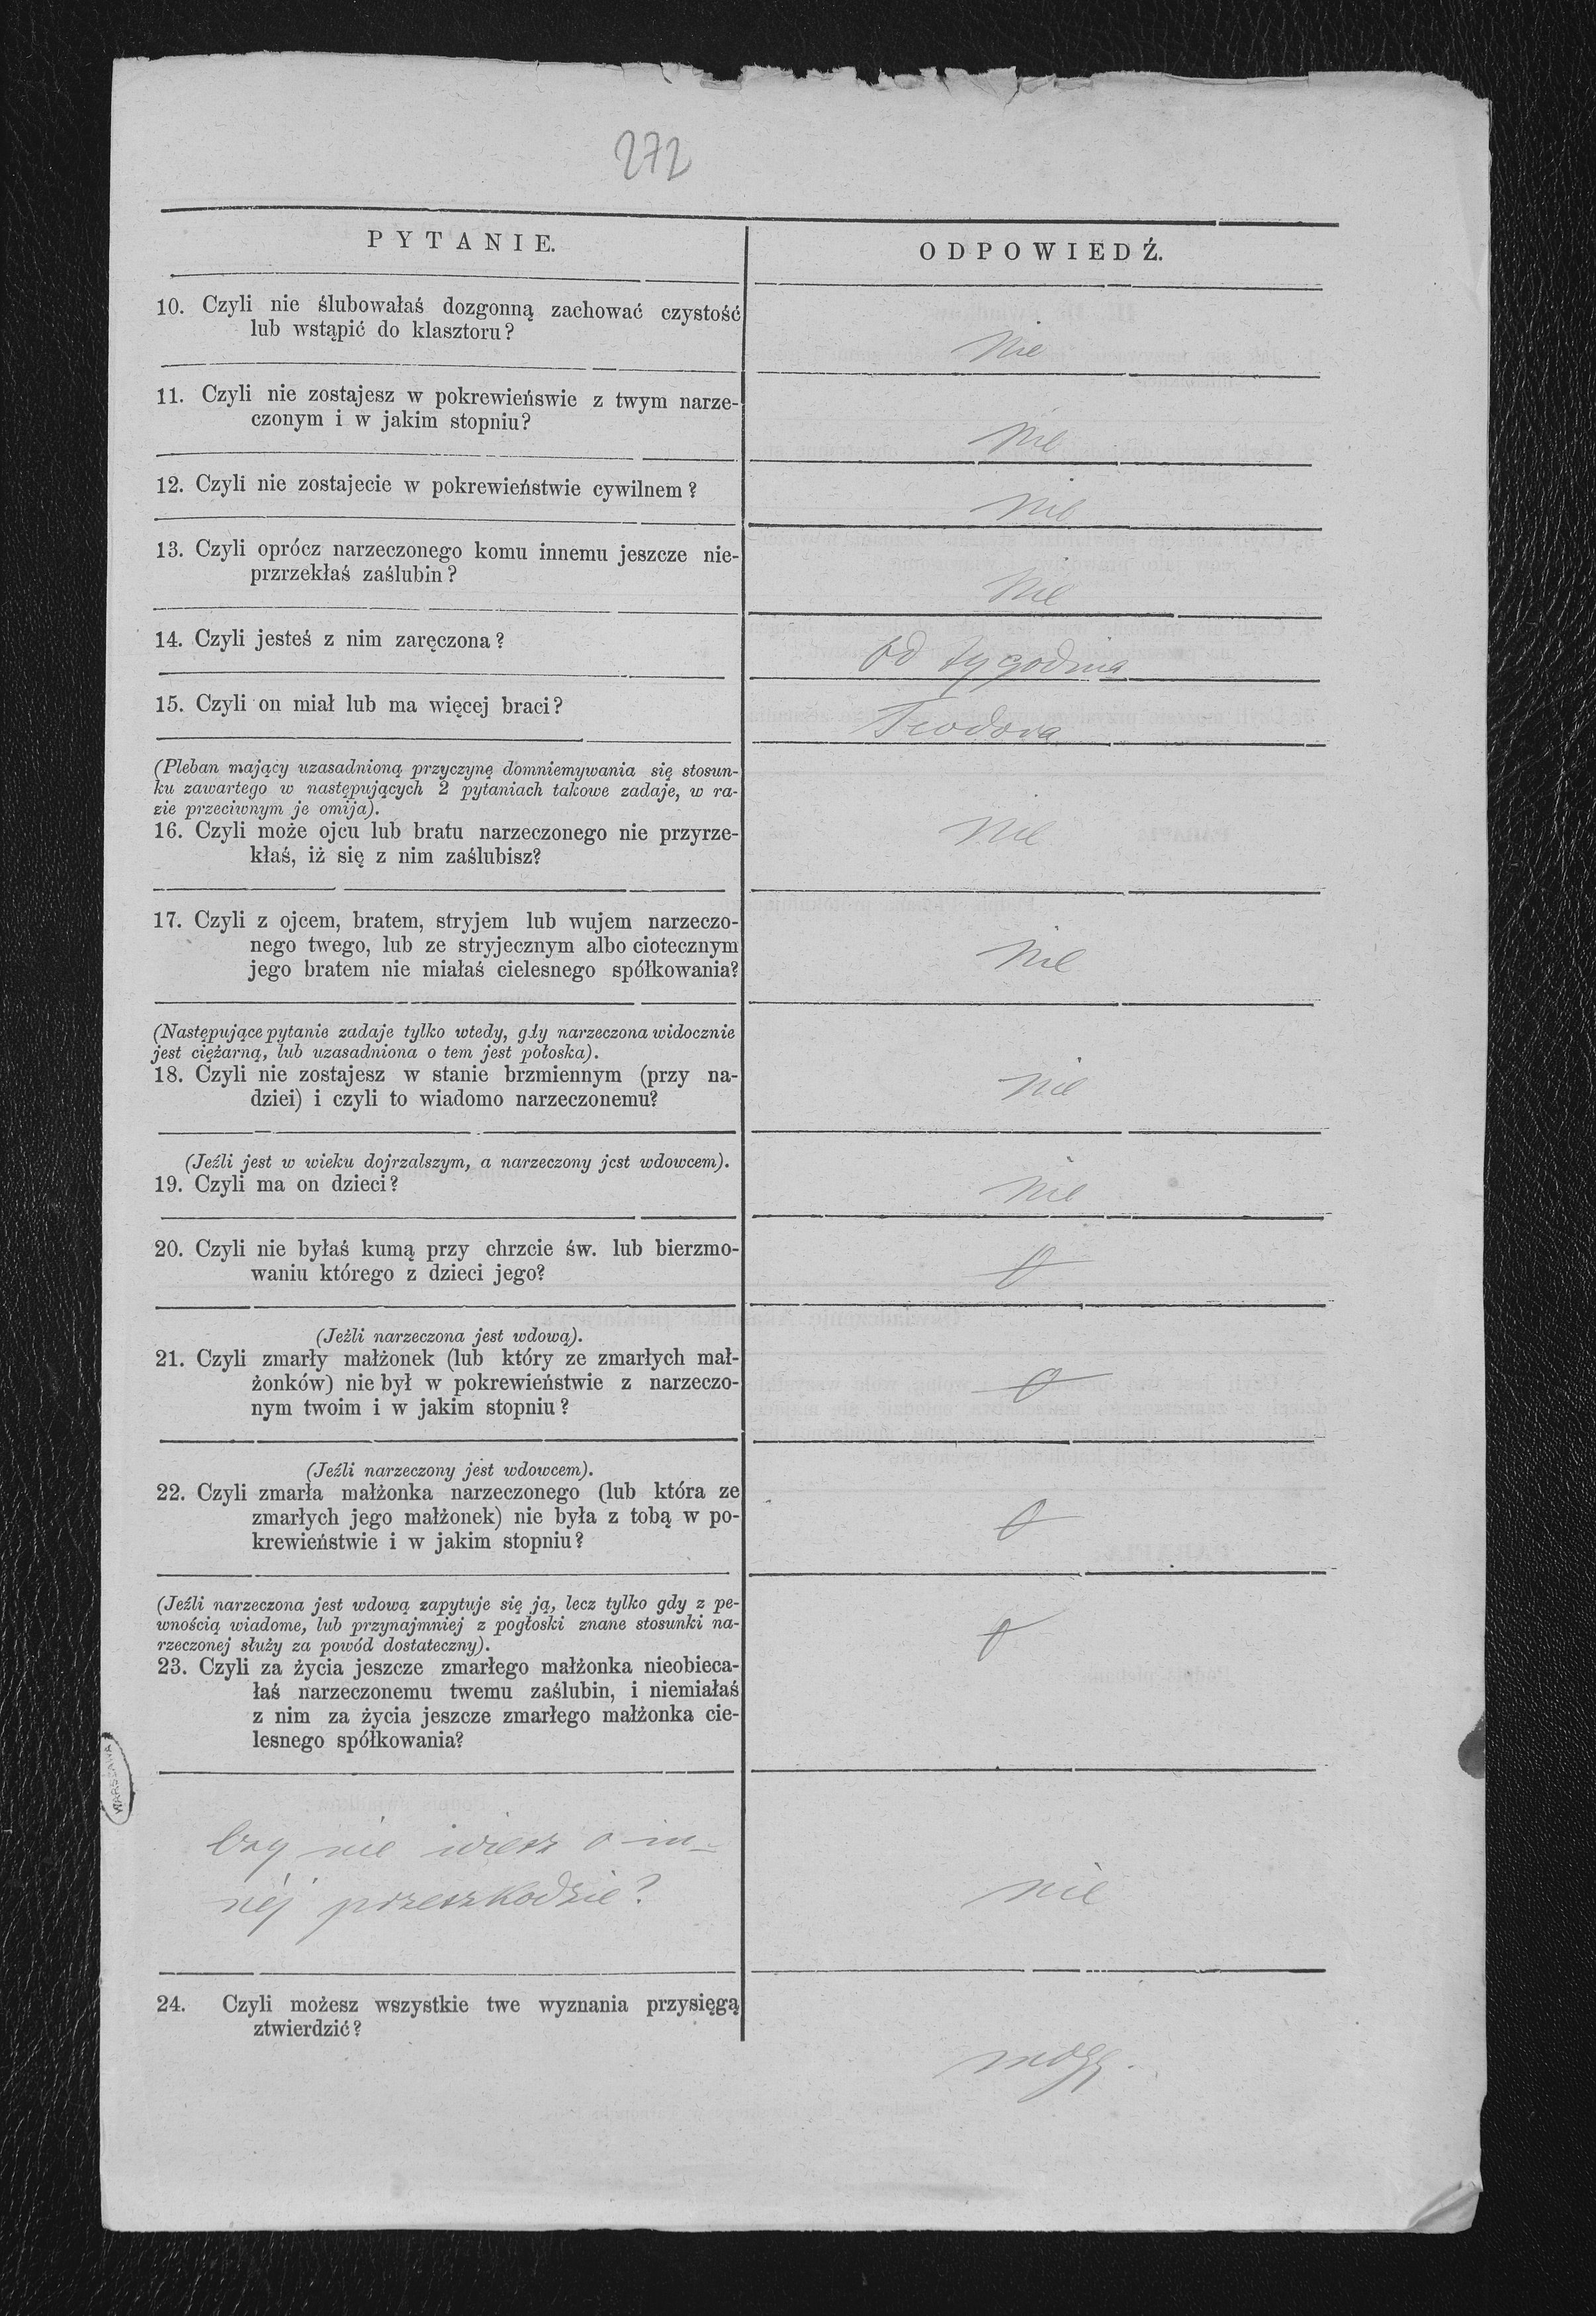 272
PYTANIE.
ODPOWIEDŹ.
10. Czyli nie ślubowałaś dozgonną zachować czystość
lub wstąpić do klasztoru?
Nie
11. Czyli nie zostajesz w pokrewieńswie z twym narze-
czonym i w jakim stopniu?
Nie
12. Czyli nie zostajecie w pokrewieństwie cywilnem?
Nie
13. Czyli oprócz narzeczonego komu innemu jeszcze nie-
przrzekłaś zaślubin?
Nie
14. Czyli jesteś z nim zaręczona?
od tygodnia
15. Czyli on miał lub ma więcej braci?
Teodora
(Pleban mający uzasadnioną przyczynę domniemywania się stosun-
ku zawartego w następujących 2 pytaniach takowe zadaje, w ra-
zie przeciwnym je omija).
16. Czyli może ojcu lub bratu narzeczonego nie przyrze-
kłaś, iż się z nim zaślubisz?
Nie
17. Czyli z ojcem, bratem, stryjem lub wujem narzeczo-
nego twego, lub ze stryjecznym albo ciotecznym
jego bratem nie miałaś cielesnego spółkowania?
Nie
(Następujące pytanie zadaje tylko wtedy, gdy narzeczona widocznie
jest ciężarną, lub uzasadniona o tem jest połoska).
18. Czyli nie zostajesz w stanie brzmiennym (przy na-
dziei) i czyli to wiadomo narzeczonemu?
nie
(Jeźli jest w wieku dojrzalszym, a narzeczony jest wdowcem).
19. Czyli ma on dzieci?
Nie
20. Czyli nie byłaś kumą przy chrzcie św. lub bierzmo-
waniu którego z dzieci jego?
0
(Jeżli narzeczona jest wdową).
21. Czyli zmarły małżonek (lub który ze zmarłych mał-
żonków) nie był w pokrewieństwie z narzeczo-
nym twoim i w jakim stopniu?
0
(Jeźli narzeczony jest wdowcem).
22. Czyli zmarła małżonka narzeczonego (lub która ze
zmarłych jego małżonek) nie była z tobą w po-
krewieństwie i w jakim stopniu?
0
(Jeźli narzeczona jest wdową zapytuje się ją, lecz tylko gdy z pe-
wnością wiadome, lub przynajmniej z pogłoski znane stosunki na-
rzeczonej służy za powód dostateczny).
23. Czyli za życia jeszcze zmarłego małżonka nieobieca-
łaś narzeczonemu twemu zaślubin, i niemiałaś
z nim za życia jeszcze zmarłego małżonka cie-
lesnego spółkowania?
0
WARSZAWA
Czy nie wiesz o in-
nej przeszkodzie?
nie
24. Czyli możesz wszystkie twe wyznania przysięgą
ztwierdzić?
mogę.